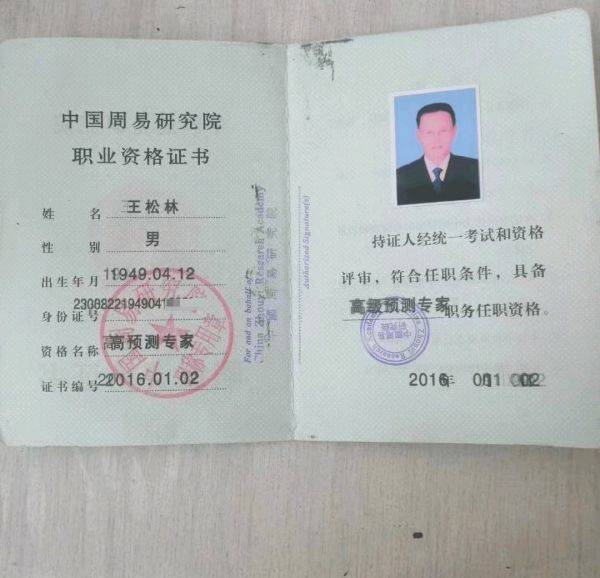 中国周易研究院
职业资格证书
姓 名 王松林
性 别 男
出生年月 1949.04.12
身份证号 23088221949041
资格名称 高预测专家
证书编号 2016.01.02
For and on behalf of
China Zhouyi Research Academy
中國周易研究院
Authorized Signature(s)
持证人经统一考试和资格
评审，符合任职条件，具备
高级预测专家 职务任职资格。
2016年 01 02